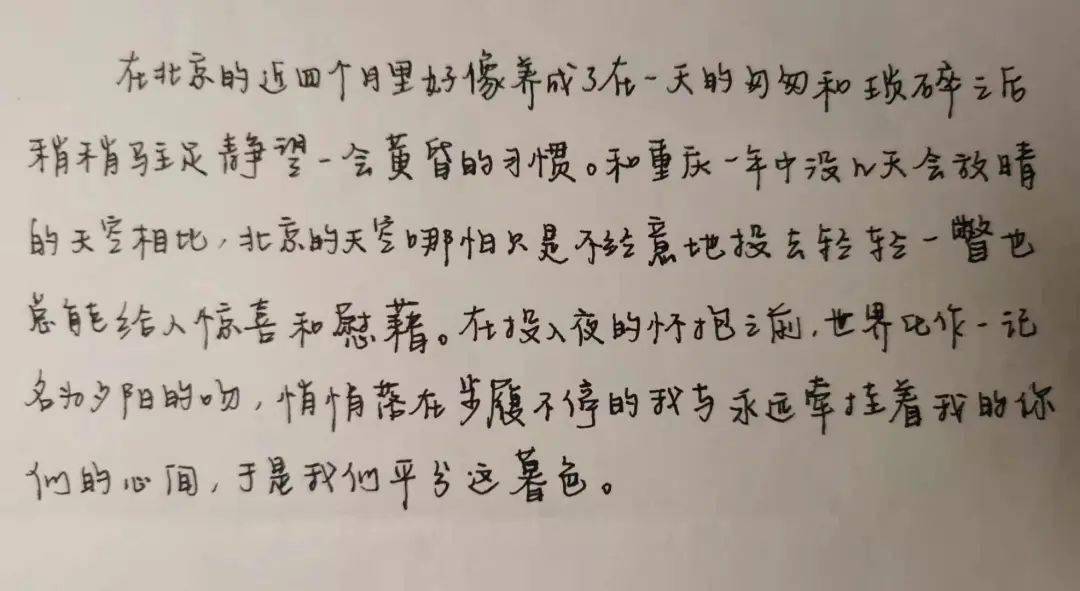 在北京的近四个月里好像养成了在一天的匆匆和琐碎之后
稍稍驻足静望一会黄昏的习惯。和重庆一年中没几天会放晴
的天空相比，北京的天空哪怕只是不经意地投去轻轻一瞥也
总能给人惊喜和慰藉。在投入夜的怀抱之前，世界化作一记
名为夕阳的吻，悄悄落在步履不停的我与永远牵挂着我的你
们的心间，于是我们平分这暮色。